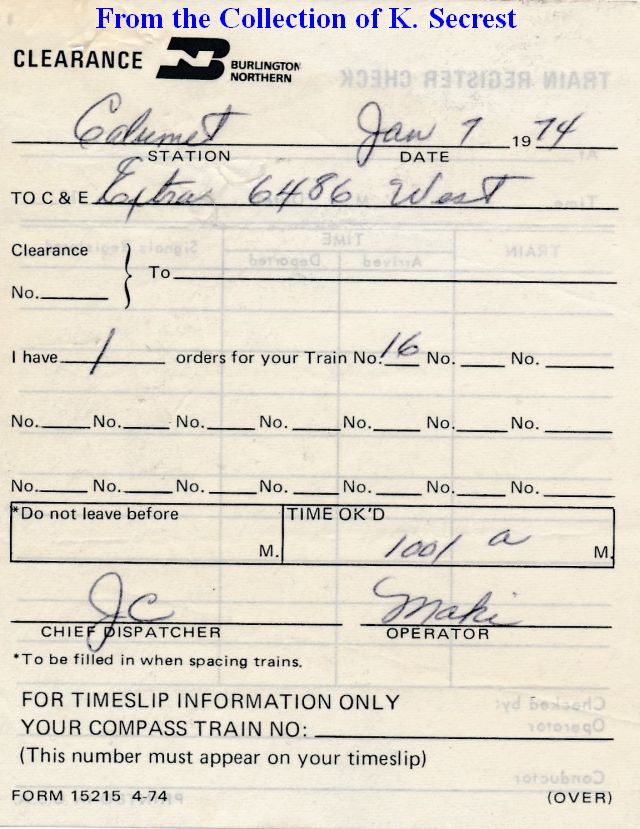 From the Collection of K. Secrest
CLEARANCE BURLINGTON NORTHERN
Calumet Jan 7 1974
STATION DATE
TO C & E Extra 6486 West
Clearance
No. To
I have 1 orders for your Train No. 16 No. No.
No. No. No. No. No. No. No.
No. No. No. No. No. No. No.
*Do not leave before TIME OK'D
M. 1001 a M.
JC Maki
CHIEF DISPATCHER OPERATOR
*To be filled in when spacing trains.
FOR TIMESLIP INFORMATION ONLY
YOUR COMPASS TRAIN NO:
(This number must appear on your timeslip)
FORM 15215 4-74 (OVER)